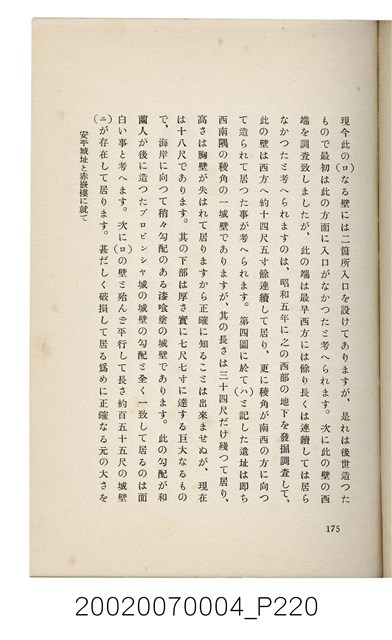 現今此の(ロ)なる壁には二箇所入口を設けてありますが、是れは後世造つた
もので最初は此の方面に入口がなかつたと考へられます。次に此の壁の西
端を調査致しましたが、此の端は最早西方には餘り長くは連續しては居ら
なかつたと考へられますのは、昭和五年に之の西部の地下を發掘調査して、
此の壁は西方へ約十四尺五寸餘連續して居り、更に稜角が南西の方に向つ
て造られて居つた事が考へられます。第四圖に於て(ハ)と記した遺址は即ち
西南隅の稜角の一城壁でありますが、其の長さは三十四尺だけ殘つて居り、
高さは胸壁が失はれて居りますから正確に知ることは出來ませぬが、現在
は十八尺であります。其の下部は厚さ實に七尺七寸に達する巨大なるもの
で、海岸に向つて稍々勾配のある漆喰塗の城壁であります。此の勾配が和
蘭人が後に造つたプロビンシヤ城の城壁の勾配と全く一致して居るのは面
白い事と考へます。次に(ロ)の壁と殆んど平行して長さ約百五十五尺の城壁
(ニ)が存在して居ります。甚だしく破損して居る爲めに正確なる元の大さを
安平城址と赤嵌樓に就て
175
20020070004_P220